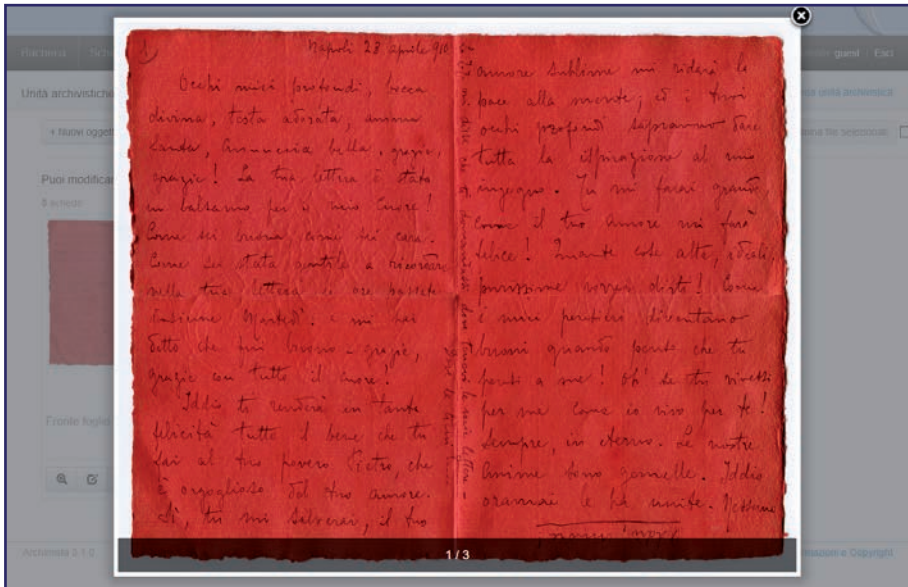 Ricerca
guest
Esci
Unità archivistiche
+ Nuovi oggett
Puoi modificar
Fronte foglio
Archimista 3.1.0
Napoli 23 aprile 910
Occhi miei profondi, bocca
divina, testa adorata, anima
santa, bella, grazie,
grazie! La tua lettera è stata
un balsamo per il mio Cuore!
Come sei buona, come sei cara.
Come sei stata gentile a ricordare
nella tua lettera le ore passate
insieme Martedì. e mi hai
detto che fui buono - grazie,
grazie con tutto il cuore!
Iddio ti renderà in tanta
felicità tutto il bene che tu
fai al tuo povero Pietro, che
è orgoglioso del tuo amore.
Sì, tu mi salverai, il tuo
amore sublime mi riderà la
pace alla mente; ed i tuoi
occhi profondi sapranno dare
tutta la ispirazione al mio
ingegno. Tu mi farai grande
come il tuo amore mi farà
felice! Quante cose alte, ideali,
purissime vorrei dirti! Come
i miei pensieri diventano
buoni quando penso che tu
pensi a me! Oh! se tu vivessi
per me come io vivo per te!
Sempre, in eterno. Le nostre
Anime sono gemelle. Iddio
oramai le ha unite. Nessuno
1 / 3